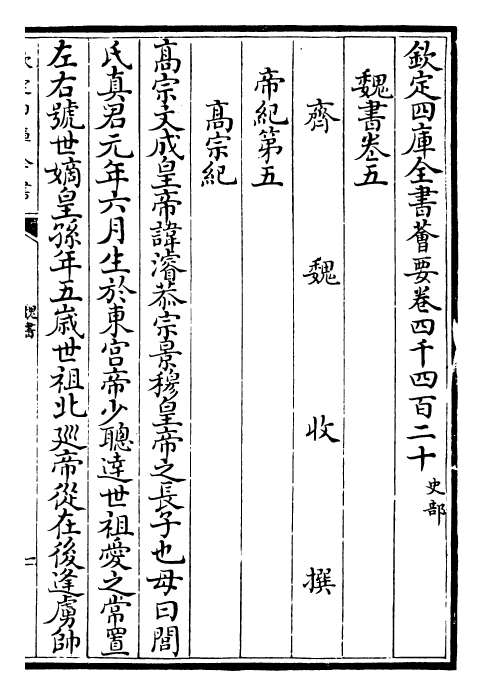 欽定四庫全書薈要卷四千四百二十 史部
魏書卷五
齊 魏 收 撰
帝紀第五
高宗紀
高宗文成皇帝諱濬恭宗景穆皇帝之長子也母曰閭
氏真君元年六月生於東宮帝少聰達世祖愛之常置
左右號世嫡皇孫年五歲世祖北廵帝從在後逢虜帥
魏書